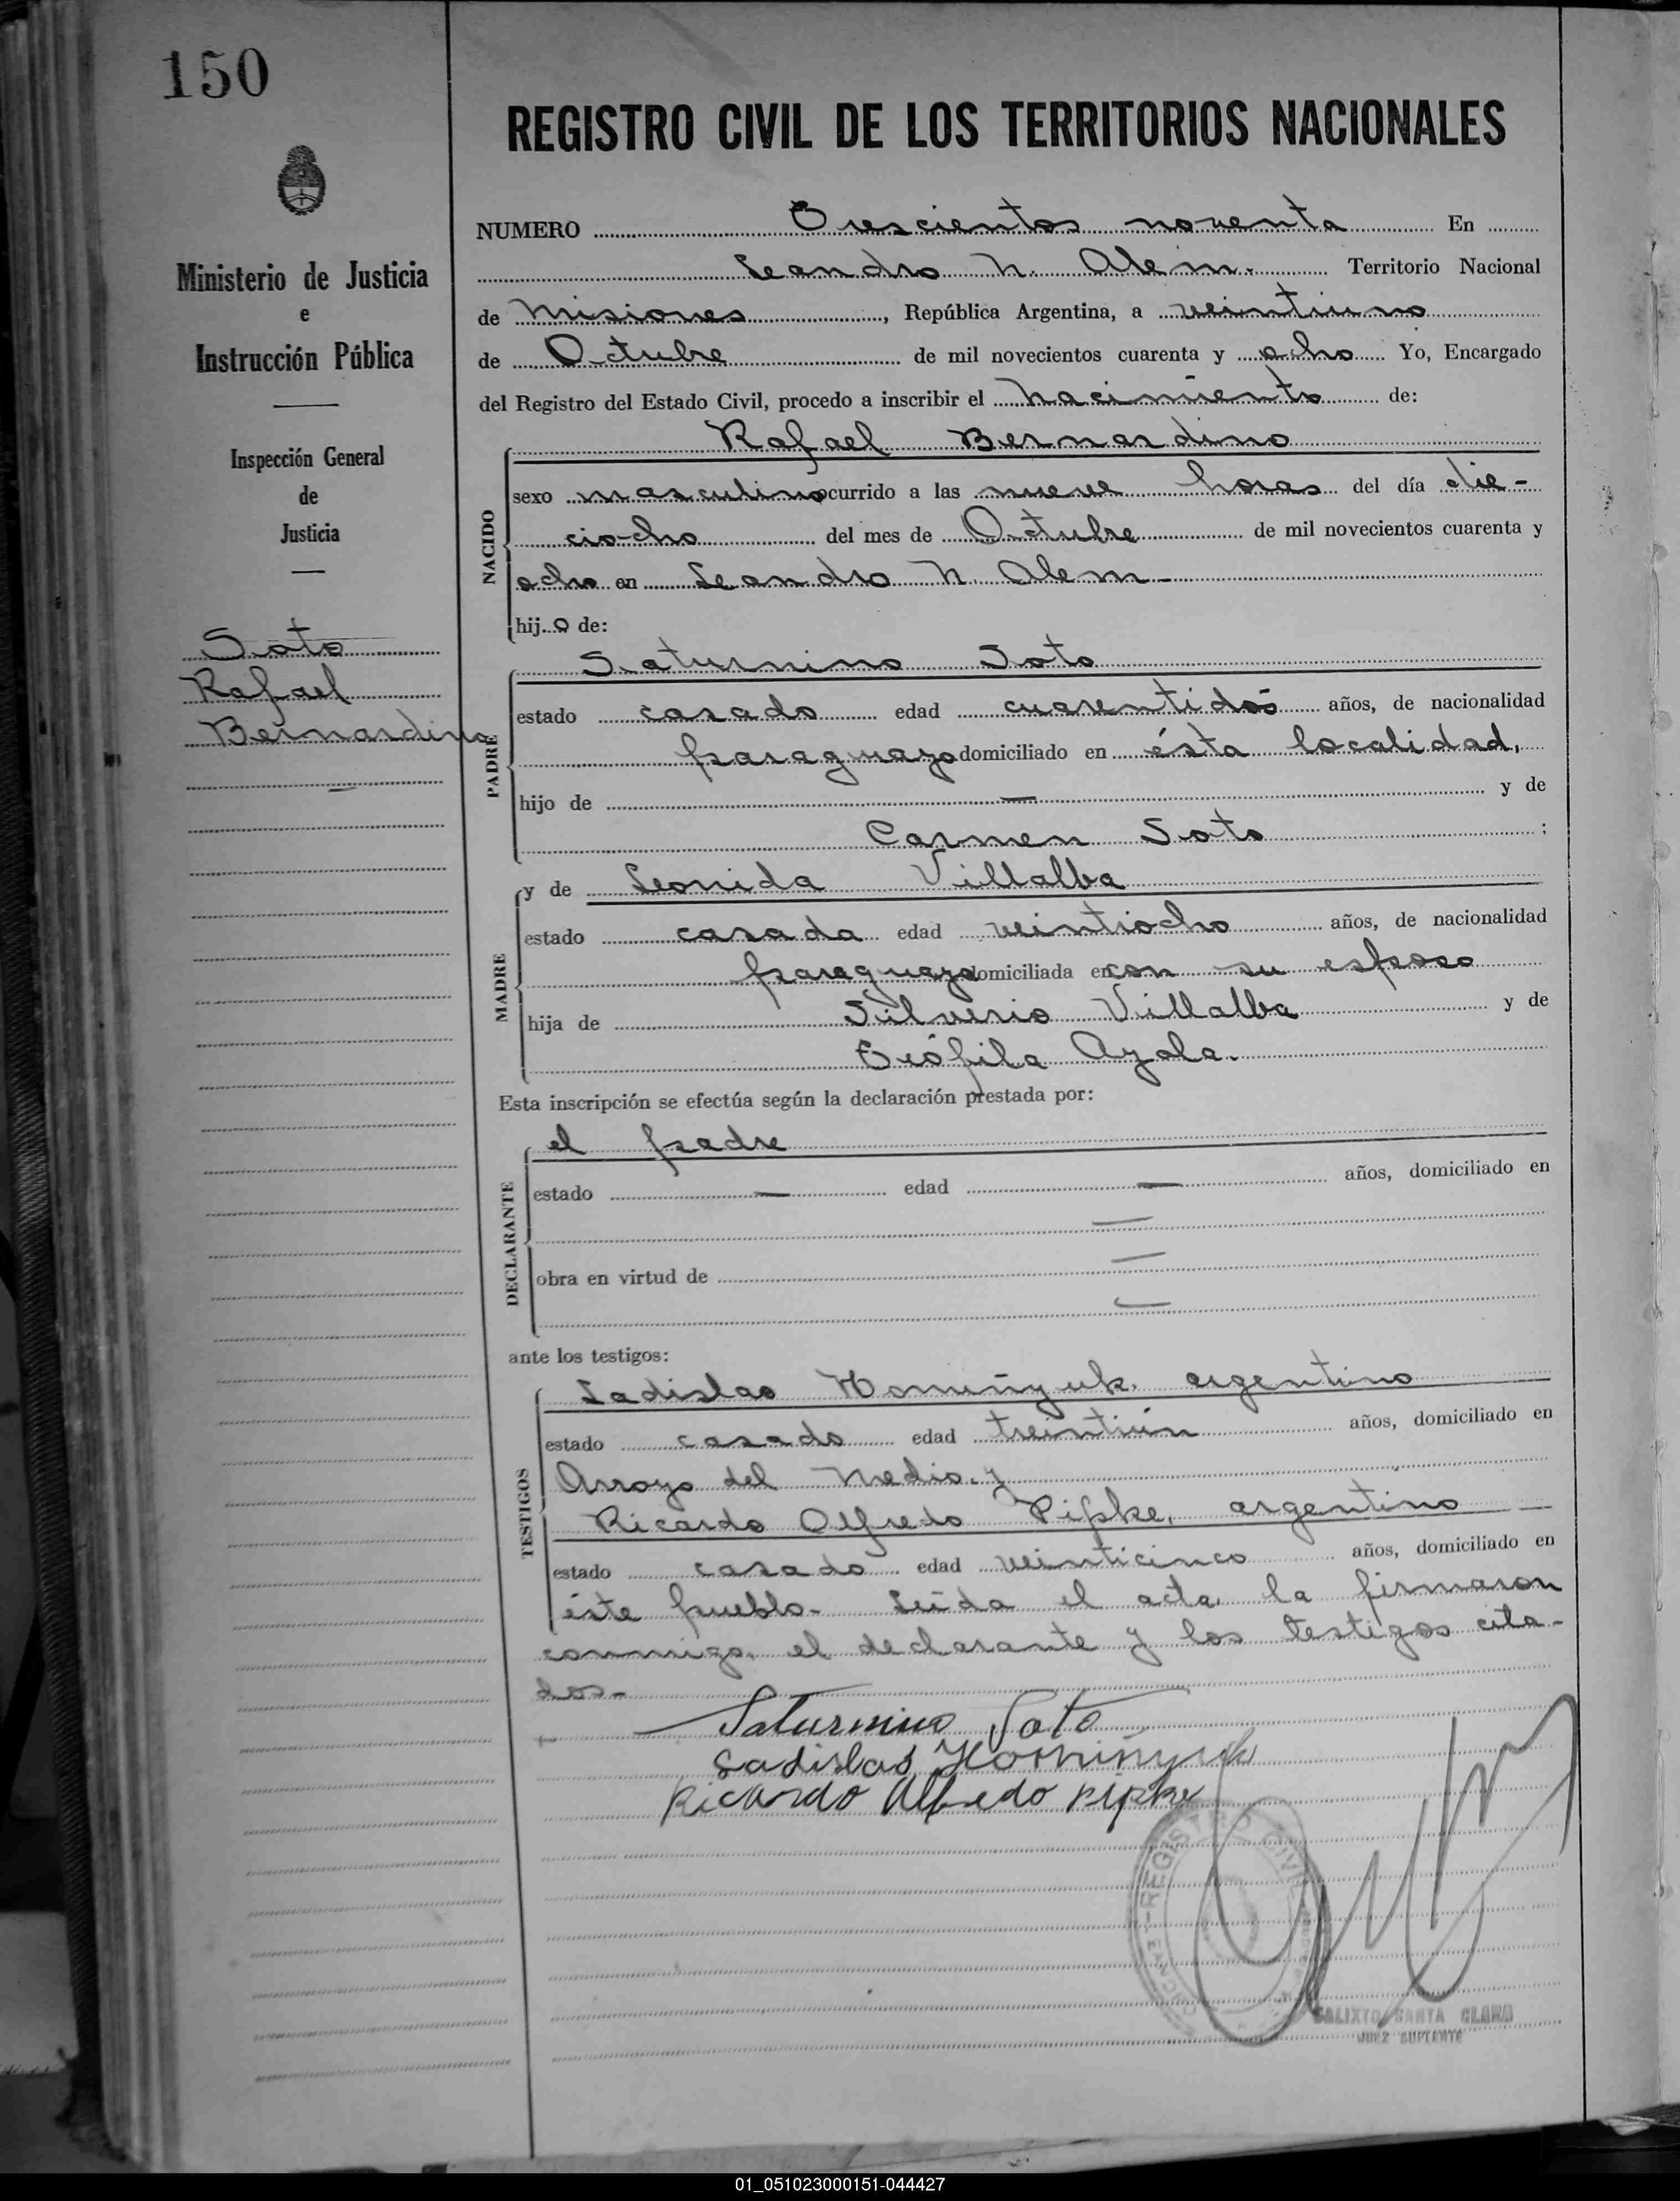 150
REGISTRO CIVIL DE LOS TERRITORIOS NACIONALES
Ministerio de Justicia
e
Instrucción Pública
Inspección General
de
Justicia
Soto
Rafael
Bernardino
NUMERO Trescientos noventa En
Leandro N. Alem. Territorio Nacional
de Misiones, República Argentina, a veintiuno
de Octubre de mil novecientos cuarenta y ocho Yo, Encargado
del Registro del Estado Civil, procedo a inscribir el Nacimiento de:
NACIDO
Rafael Bernardino
sexo masculino ocurrido a las nueve horas del día die-
ciocho del mes de Octubre de mil novecientos cuarenta y
ocho en Leandro N. Alem-
hijo de:
PADRE
Saturnino Soto
estado casado edad cuarentidós años, de nacionalidad
paraguayo domiciliado en ésta localidad,
hijo de — y de
Carmen Soto ;
MADRE
y de Leonida Villalba
estado casada edad veintiocho años, de nacionalidad
paraguaya domiciliada en con su esposo
hija de Silverio Villalba y de
Teófila Ayala.
Esta inscripción se efectúa según la declaración prestada por:
DECLARANTE
el padre
estado — edad — años, domiciliado en
—
obra en virtud de —
—
ante los testigos:
TESTIGOS
Ladislao Homiñyuk, argentino
estado casado edad treintiún años, domiciliado en
Arroyo del Medio y
Ricardo Alfredo Pipke, argentino —
estado casado edad veinticinco años, domiciliado en
éste pueblo- Leída el acta, la firmaron
conmigo, el declarante y los testigos cita-
dos-
Saturnino Soto
Ladislao Homiñyuk
Ricardo Alfredo Pipke
REGISTRO CIVIL
CALIXTO SANTA CLARA
JUEZ SUPLENTE
01_051023000151-044427